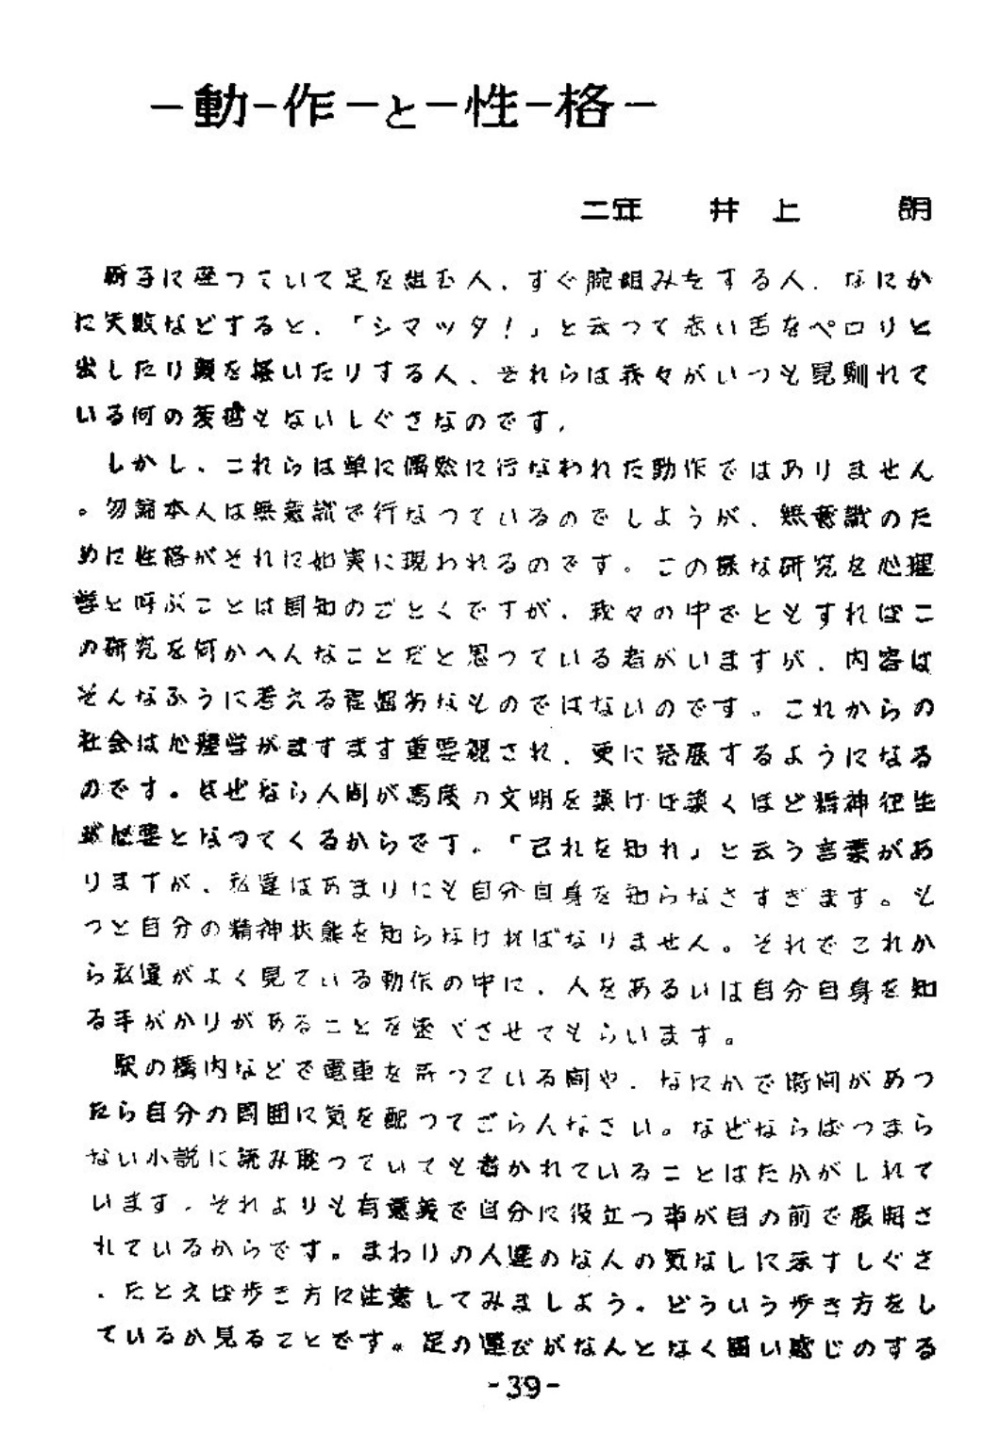 －動－作－と－性－格－
二年　井上　明
椅子に座つていて足を組む人、すぐ腕組みをする人、なにか
に失敗などすると、「シマッタ！」と云つて赤い舌をペロリと
出したり頭を掻いたりする人、それらは我々がいつも見馴れて
いる何の変哲もないしぐさなのです。
しかし、これらは単に偶然に行なわれた動作ではありません
。勿論本人は無意識で行なつているのでしようが、無意識のた
めに性格がそれに如実に現われるのです。この様な研究を心理
学と呼ぶことは周知のごとくですが、我々の中でともすればこ
の研究を何かへんなことだと思つている者がいますが、内容は
そんなふうに考える程愚劣なものではないのです。これからの
社会は心理学がますます重要視され、更に発展するようになる
のです。なぜなら人間が高度の文明を築けば築くほど精神衛生
が必要となつてくるからです。「己れを知れ」と云う言葉があ
りますが、私達はあまりにも自分自身を知らなさすぎます。も
つと自分の精神状態を知らなければなりません。それでこれか
ら私達がよく見ている動作の中に、人をあるいは自分自身を知
る手がかりがあることを述べさせてもらいます。
駅の構内などで電車を待つている間や、なにかで時間があつ
たら自分の周囲に気を配つてごらんなさい。なぜならばつまら
ない小説に読み耽つていても書かれていることはたかがしれて
います。それよりも有意義で自分に役立つ事が目の前で展開さ
れているからです。まわりの人達のなんの気なしに示すしぐさ
、たとえば歩き方に注意してみましよう。どういう歩き方をし
ているか見ることです。足の運びがなんとなく重い感じのする
-39-